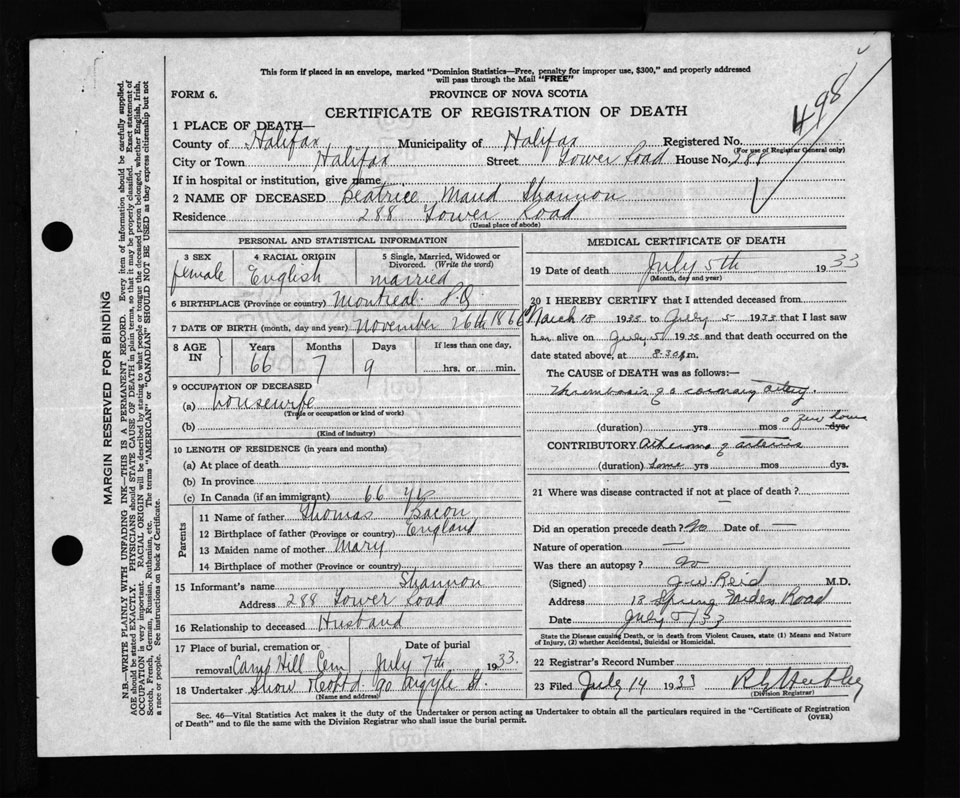 This form if placed in an envelope, marked "Dominion Statistics—Free, penalty for improper use, $300," and properly addressed
will pass through the Mail "FREE"
498
FORM 6.
PROVINCE OF NOVA SCOTIA
CERTIFICATE OF REGISTRATION OF DEATH
1 PLACE OF DEATH—
County of Halifax Municipality of Halifax Registered No.
(For use of Registrar General only)
City or Town Halifax Street Tower Road House No. 288
If in hospital or institution, give name
2 NAME OF DECEASED Beatrice Maud Shannon
Residence 288 Tower Road
(Usual place of abode)
PERSONAL AND STATISTICAL INFORMATION
3 SEX female
4 RACIAL ORIGIN English
5 Single, Married, Widowed or
Divorced. (Write the word)
married
6 BIRTHPLACE (Province or country) Montreal P.Q
7 DATE OF BIRTH (month, day and year) November 26th 1866
8 AGE IN
Years Months Days If less than one day,
66 7 9 hrs. or min.
9 OCCUPATION OF DECEASED
(a) housewife
(Trade or occupation or kind of work)
(b)
(Kind of industry)
10 LENGTH OF RESIDENCE (in years and months)
(a) At place of death
(b) In province
(c) In Canada (if an immigrant) 66 yrs
Parents
11 Name of father Thomas Bacon
12 Birthplace of father (Province or country) England
13 Maiden name of mother Mary
14 Birthplace of mother (Province or country)
15 Informant's name Shannon
Address 288 Tower Road
16 Relationship to deceased Husband
17 Place of burial, cremation or Date of burial
removal Camp Hill Cem July 7th 1933.
18 Undertaker Snow Co Ltd 90 Argyle St.
(Name and address)
MEDICAL CERTIFICATE OF DEATH
19 Date of death July 5th 1933
(Month, day and year)
20 I HEREBY CERTIFY that I attended deceased from
March 18 1933 to July 5 1933 that I last saw
her alive on July 5 1933 and that death occurred on the
date stated above, at 8.30 p.m.
The CAUSE of DEATH was as follows:
Thrombosis of a coronary artery.
(duration) yrs mos a few hours dys.
CONTRIBUTORY Atheroma of arteries
(duration) some yrs mos dys.
21 Where was disease contracted if not at place of death? —
Did an operation precede death? No Date of —
Nature of operation —
Was there an autopsy? No
(Signed) J. W. Reid M.D.
Address 13 Spring Garden Road
Date July 5/33
State the Disease causing Death, or in death from Violent Causes, state (1) Means and Nature
of Injury, (2) whether Accidental, Suicidal or Homicidal.
22 Registrar's Record Number
23 Filed July 14 1933
(Division Registrar)
Sec. 46—Vital Statistics Act makes it the duty of the Undertaker or person acting as Undertaker to obtain all the particulars required in the "Certificate of Registration
of Death" and to file the same with the Division Registrar who shall issue the burial permit. (OVER)
MARGIN RESERVED FOR BINDING
N.B.—WRITE PLAINLY WITH UNFADING INK—THIS IS A PERMANENT RECORD. Every item of information should be carefully supplied.
AGE should be stated EXACTLY. PHYSICIANS should STATE CAUSE OF DEATH in plain terms, so that it may be properly classified. Exact statement of
OCCUPATION is very important. RACIAL ORIGIN will be described by stating to what people or tongue the deceased person belonged, whether English, Irish,
Scotch, French, German, Russian, Ruthenian, etc. The terms "AMERICAN" or "CANADIAN" SHOULD NOT BE USED as they express citizenship but not
a race or people. See instructions on back of Certificate.